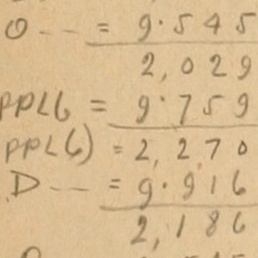 O -- = 9.545
2,029
PPL6 = 9.759
PPL6) = 2,270
D -- = 9.916
2,186